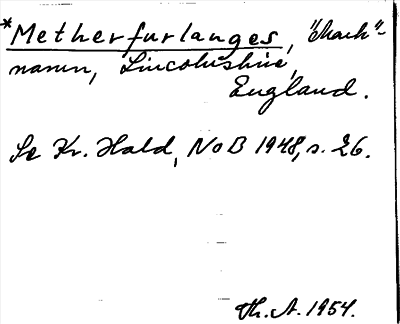 *Metherfurlanges, "Mark"-
namn, Lincolnshire,
England.
Se Kr. Hald, NoB 1948, s. 26.
Th. A. 1954.